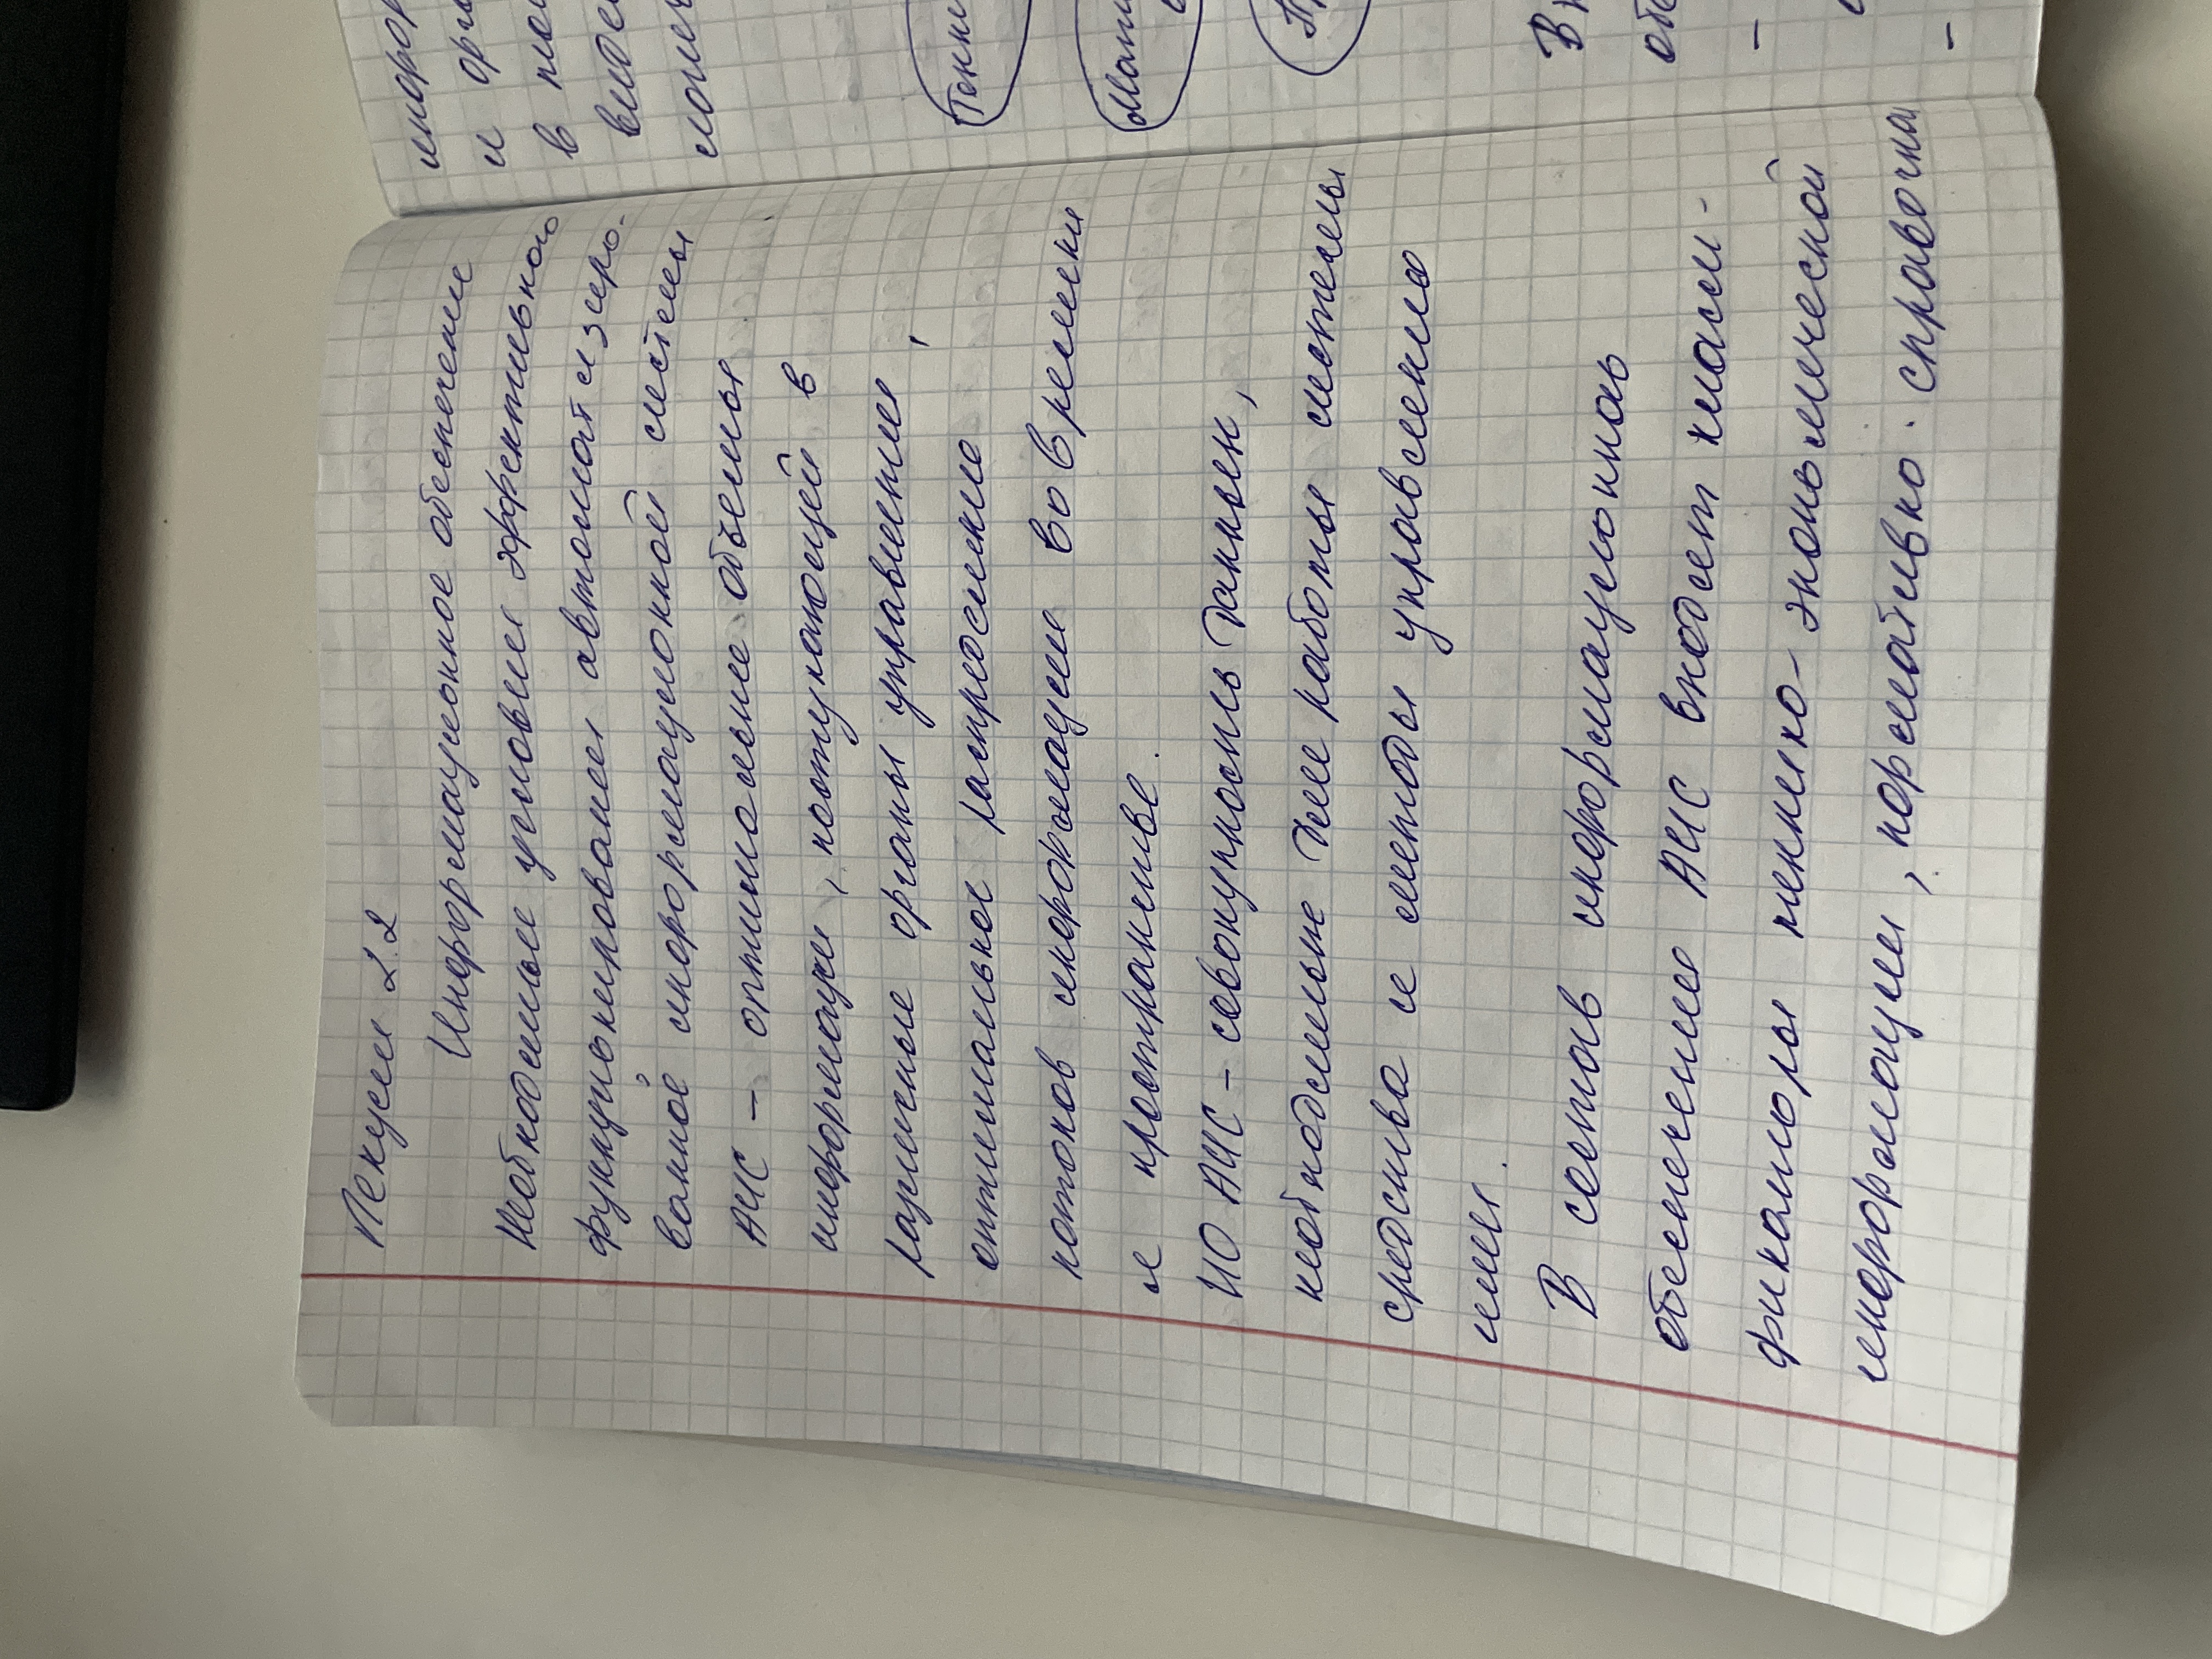 Лекция 2.2
Информационное обеспечение
Необходимые условия эффективного
функционирования автоматизиро-
ванной информационной системы
АИС - оптимальные объемы
информации, поступающей в
различные органы управления,
оптимальное распределение
потоков информации во времени
и пространстве.
ИО АИС - совокупность данных,
необходимые для работы системы
средства и методы управления
ими.
В состав информационно
обеспечению АИС входят класси-
фикаторы технико-экономической
информации, нормативно. справочна
информ
и орга
в
видел
Техни
Мати
В
обе
-
-